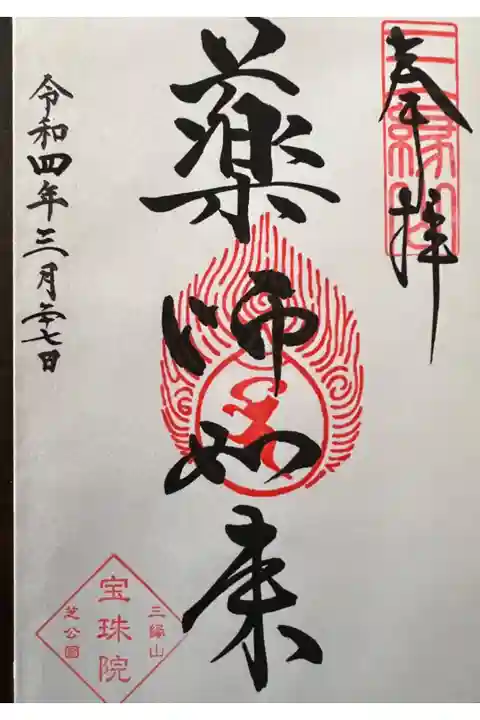 奉拝
三縁山
薬師如来
令和四年三月廿七日
三縁山
宝珠院
芝公園